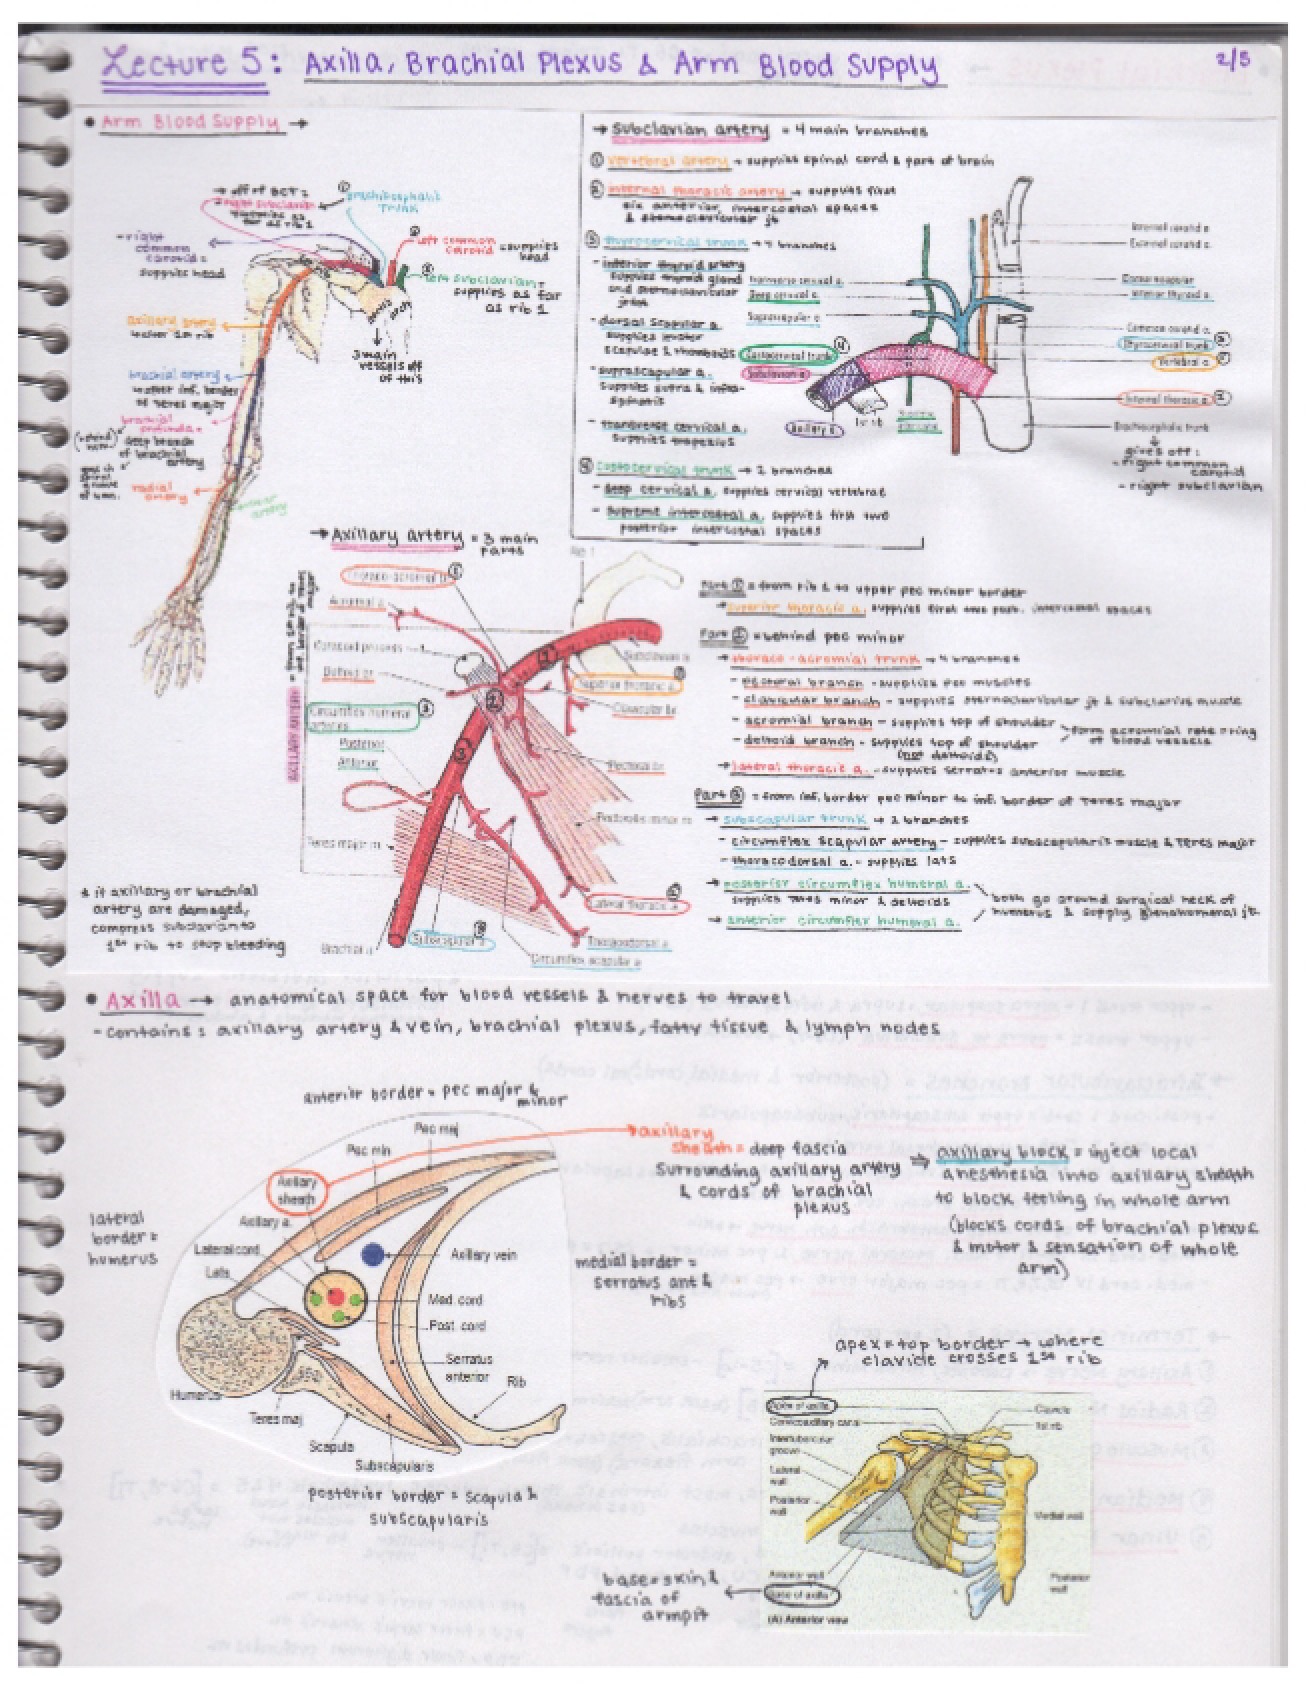 Lecture 5: Axilla, Brachial Plexus & Arm Blood Supply
2/5
• Arm Blood Supply →
→ off of BCT =
right subclavian
supplies as
far as rib 1
① brachiocephalic
trunk
- right
common
carotid =
supplies head
② left common
carotid = supplies
head
③ left subclavian =
supplies as far
as rib 1
3 main
vessels off
of this
axillary artery
brachial artery
after inf. border
of Teres major
brachial
profunda =
deep branch
of brachial
artery
radial
artery
ulnar
artery
→ Subclavian artery = 4 main branches
① vertebral artery → supplies spinal cord & part of brain
② internal thoracic artery → supplies first
six anterior intercostal spaces
& sternoclavicular jt
③ thyrocervical trunk → 4 branches
- inferior thyroid artery
supplies thyroid gland
and sternoclavicular
joint
- dorsal scapular a.
supplies levator
scapulae & rhomboids
- suprascapular a.
supplies supra & infra-
spinatis
- transverse cervical a.
supplies trapezius
④ Costocervical trunk → 2 branches
- deep cervical a. supplies cervical vertebrae
- supreme intercostal a. supplies first two
posterior intercostal spaces
Internal carotid a.
External carotid a.
Transverse cervical a.
Deep cervical a.
Suprascapular a.
Inferior thyroid a.
Common carotid a.
Thyrocervical trunk
Vertebral a.
Costocervical trunk ④
Subclavian a.
Internal thoracic a.
Axillary a.
1st rib
Brachiocephalic trunk
gives off:
- right common
carotid
- right subclavian
→ Axillary artery = 3 main
parts
Thoraco-acromial
Acromial
Coracoid process
Deltoid br.
Circumflex humeral
arteries
Posterior
Anterior
Teres major m.
Brachial a.
Subscapular a.
Rib 1
Subclavian a.
Superior thoracic a.
Clavicular br.
Pectoral br.
Pectoralis minor m.
Lateral thoracic a.
Thoracodorsal a.
Circumflex scapular a.
AXILLARY ARTERY
Part ① = from rib 1 to upper pec minor border
→ superior thoracic a. supplies first two post. intercostal spaces
Part ② = behind pec minor
→ thoraco-acromial trunk → 4 branches
- pectoral branch - supplies pec muscles
- clavicular branch - supplies sternoclavicular jt & subclavius muscle
- acromial branch - supplies top of shoulder
- deltoid branch - supplies top of shoulder
(not deltoids)
form acromial rete = ring
of blood vessels
→ lateral thoracic a. - supplies serratus anterior muscle
Part ③ = from inf. border pec minor to inf. border of Teres major
→ subscapular trunk → 2 branches
- circumflex scapular artery - supplies subscapularis muscle & Teres major
- thoracodorsal a. - supplies lats
→ posterior circumflex humeral a.
supplies Teres minor & deltoids
→ anterior circumflex humeral a.
both go around surgical neck of
humerus & supply glenohumeral jt.
* if axillary or brachial
artery are damaged,
compress subclavian to
1st rib to stop bleeding
• Axilla → anatomical space for blood vessels & nerves to travel
- contains: axillary artery & vein, brachial plexus, fatty tissue & lymph nodes
anterior border = pec major &
minor
Pec maj
Pec min
Axillary
sheath
Axillary a.
Lateral cord
Lats
Axillary vein
Med. cord
Post. cord
Serratus
anterior
Rib
Humerus
Teres maj
Scapula
Subscapularis
lateral
border =
humerus
medial border =
serratus ant &
ribs
posterior border = scapula &
subscapularis
axillary
sheath = deep fascia
surrounding axillary artery
& cords of brachial
plexus
⇒ axillary block = inject local
anesthesia into axillary sheath
to block feeling in whole arm
(blocks cords of brachial plexus
& motor & sensation of whole
arm)
apex = top border → where
clavicle crosses 1st rib
Apex of axilla
Cervicoaxillary canal
Intertubercular
groove
Lateral
wall
Posterior
wall
Clavicle
1st rib
Medial wall
Posterior
wall
Anterior wall
Base of axilla
(A) Anterior view
base = skin &
fascia of
armpit